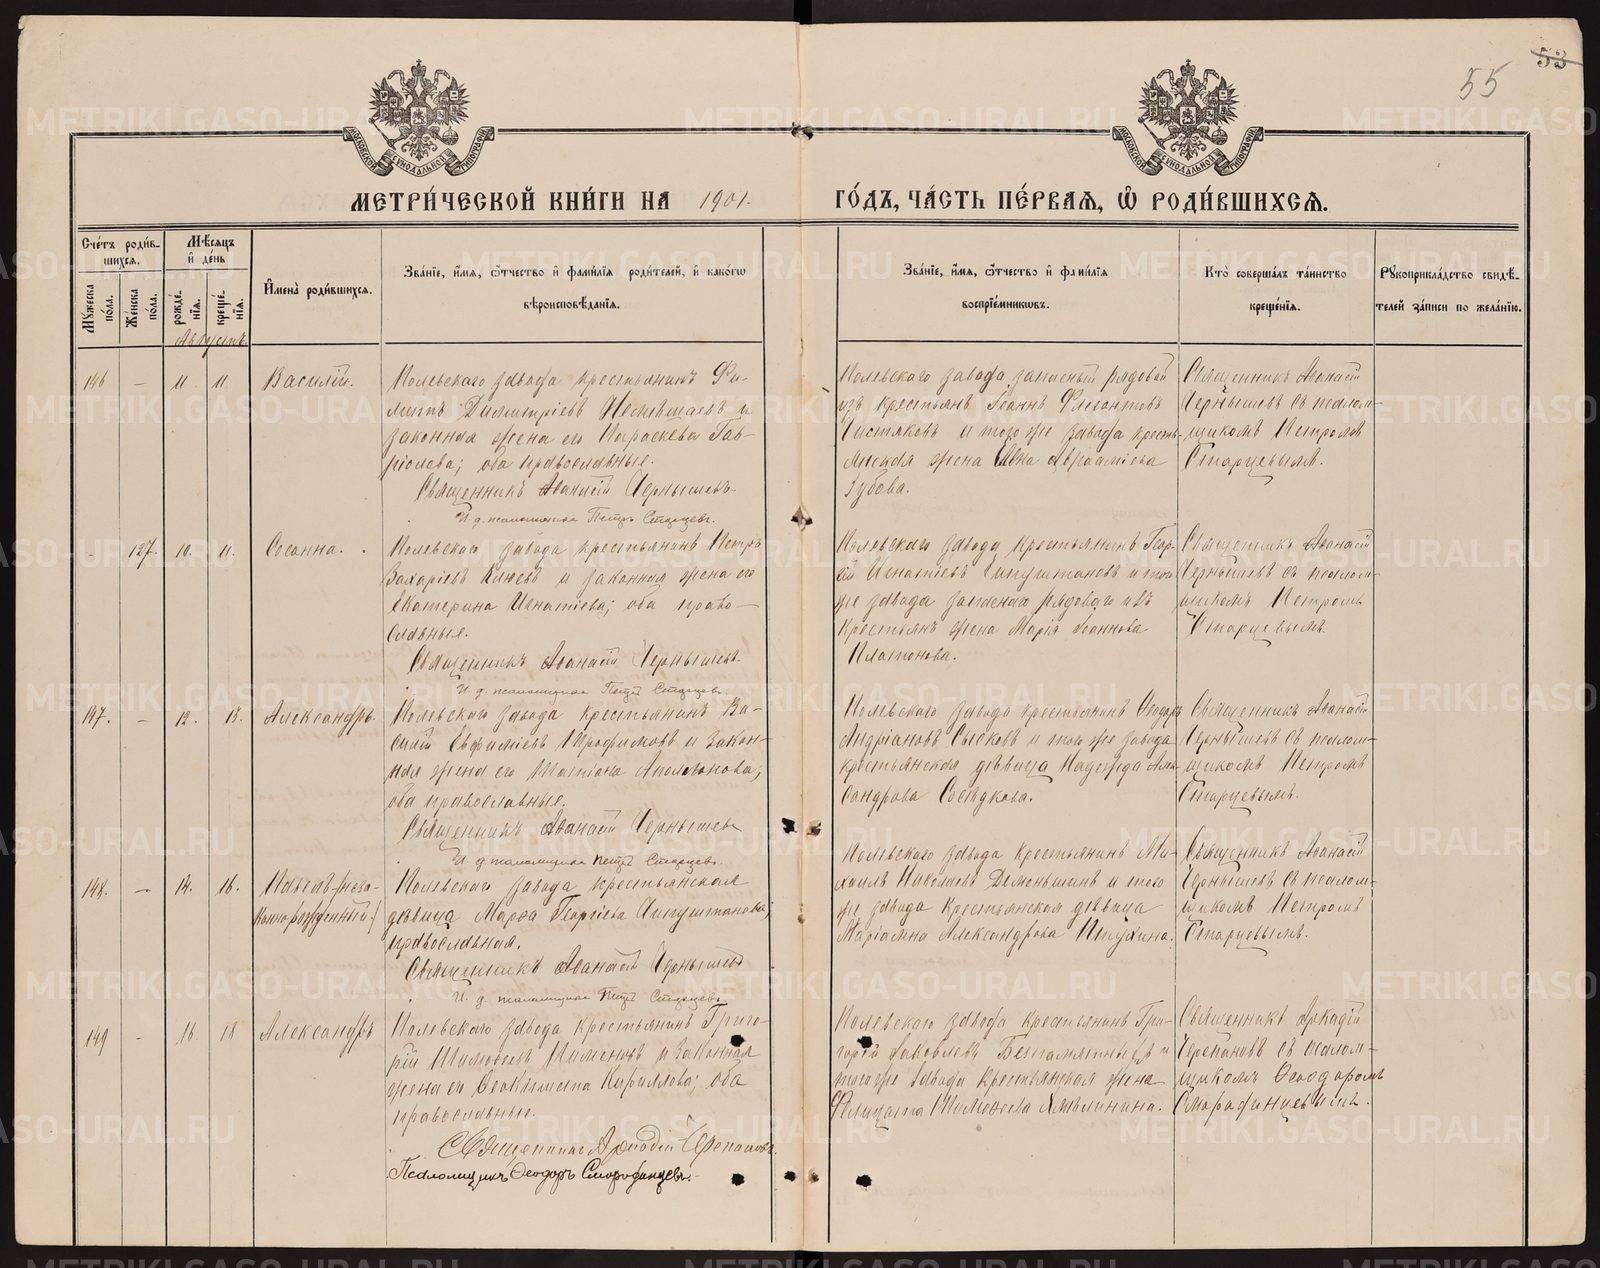 53
55
МОСКОВСКОЙ СѴНОДАЛЬНОЙ ТИПОГРАФІИ
МОСКОВСКОЙ СѴНОДАЛЬНОЙ ТИПОГРАФІИ
МЕТРИ́ЧЕСКОЙ КНИ́ГИ НА 1901. ГО́ДЪ, ЧА́СТЬ ПЕ́РВАѦ, Ѽ РОДИ́ВШИХСѦ.
Сче́тъ роди́в-
шихся.
Мѣ́сяцъ
и҆ де́нь
Му́жеска
по́ла.
Же́нска
по́ла.
рожде́-
нїѧ.
креще́-
нїѧ.
И҆мена̀ роди́вшихся.
Зва́нїе, и҆́мѧ, ѻ҆́тчество и҆ фами́лїѧ роди́телей, и҆ како́гѡ
вѣроисповѣ́данїѧ.
Зва́нїе, и҆́мѧ, ѻ҆́тчество и҆ фами́лїѧ
воспрїе́мникѡвъ.
Кто̀ соверша́лъ та́инство
креще́нїѧ.
Рꙋкоприкла́дство свидѣ́-
телей за́писи по жела́нїю.
Августъ
146 — 11. 11. Василій.
Полевского завода крестьянинъ Фи-
липпъ Димитріевъ и
законная жена его Параскева Гав-
ріилова; оба православные.
Священникъ Аѳанасій Чернышевъ.
И. д. псаломщика Петръ Старцевъ.
Полевского завода запасный рядовой
изъ крестьянъ Іоаннъ Флегонтовъ
Чистяковъ и того же завода кресть-
янская жена Анна Авраамiева
Зубова.
Священникъ Аѳанасій
Чернышевъ съ псалом-
щикомъ Петромъ
Старцевымъ.
- 127. 10. 11. Сосанна.
Полевского завода крестьянинъ Петръ
Захаріевъ Клюевъ и законная жена его
Екатерина Игнатіева; оба право-
славные.
Священникъ Аѳанасій Чернышевъ.
И. д. псаломщика Петръ Старцевъ.
Полевского завода крестьянинъ Геор-
гій Игнатіевъ Липуштановъ и того
же завода запасного рядового изъ
крестьянъ жена Марія Іоаннова
Платонова.
Священникъ Аѳанасій
Чернышевъ съ псалом-
щикомъ Петромъ
Старцевымъ.
147. — 12. 18. Александръ.
Полевского завода крестьянинъ Ва-
силій Евфиміевъ Трофимовъ и закон-
ная жена его Татіана Аполлонова;
оба православные.
Священникъ Аѳанасій Чернышевъ
И. д. псаломщика Петръ Старцевъ.
Полевского завода крестьянинъ Ѳеодоръ
Андріановъ Сысковъ и того же завода
крестьянская дѣвица Надежда Але-
сандрова Сосѣдкова.
Священникъ Аѳанасій
Чернышевъ съ псалом-
щикомъ Петромъ
Старцевымъ.
148. — 14. 16. Павелъ (неза-
коннорожденный)
Полевского завода крестьянская
дѣвица Марѳа Георгіева Липуштанова;
православная.
Священникъ Аѳанасій Чернышевъ
И. д. псаломщика Петръ Старцевъ
Полевского завода крестьянинъ Ми-
хаилъ Николаевъ Деменьшинъ и того
же завода крестьянская дѣвица
Маріамна Александрова Пичугина.
Священникъ Аѳанасій
Чернышевъ съ псалом-
щикомъ Петромъ
Старцевымъ.
149 - 16. 18 Александръ
Полевского завода крестьянинъ Григо-
рій и законная
жена его Ѳеоктиста Кириллова; оба
православные.
Священникъ Аркадій Черепановъ.
Псаломщикъ Ѳеодоръ Смородинцевъ.
Полевского завода крестьянинъ Гри-
горій Іаковлевъ Безпамятныхъ и
того же завода крестьянская жена
Фелицата Тимоѳеева Хмѣлинина.
Священникъ Аркадій
Черепановъ съ псалом-
щикомъ Ѳеодоромъ
Смородинцевымъ.
METRIKI.GASO-URAL.RU